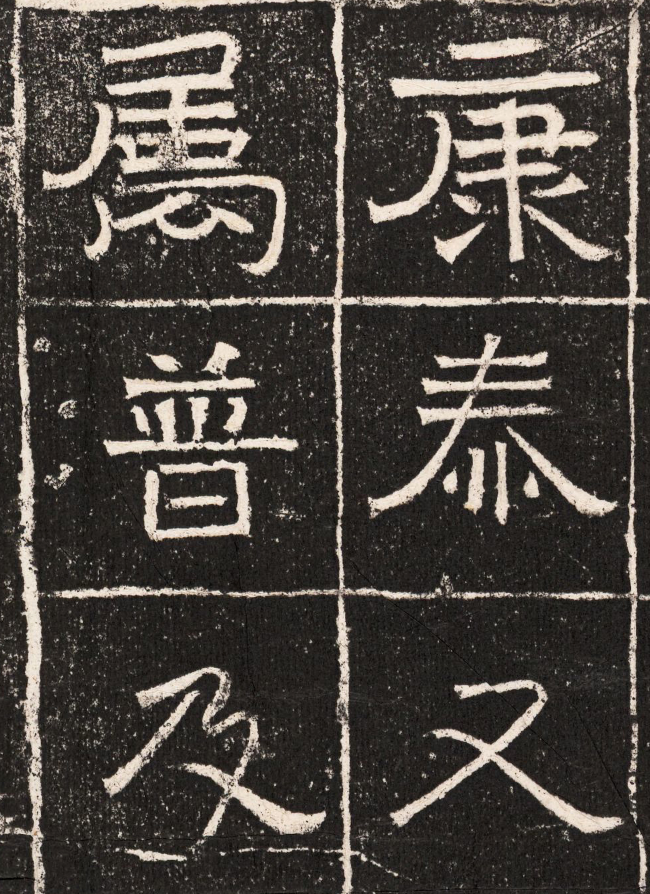 康泰又
属普及